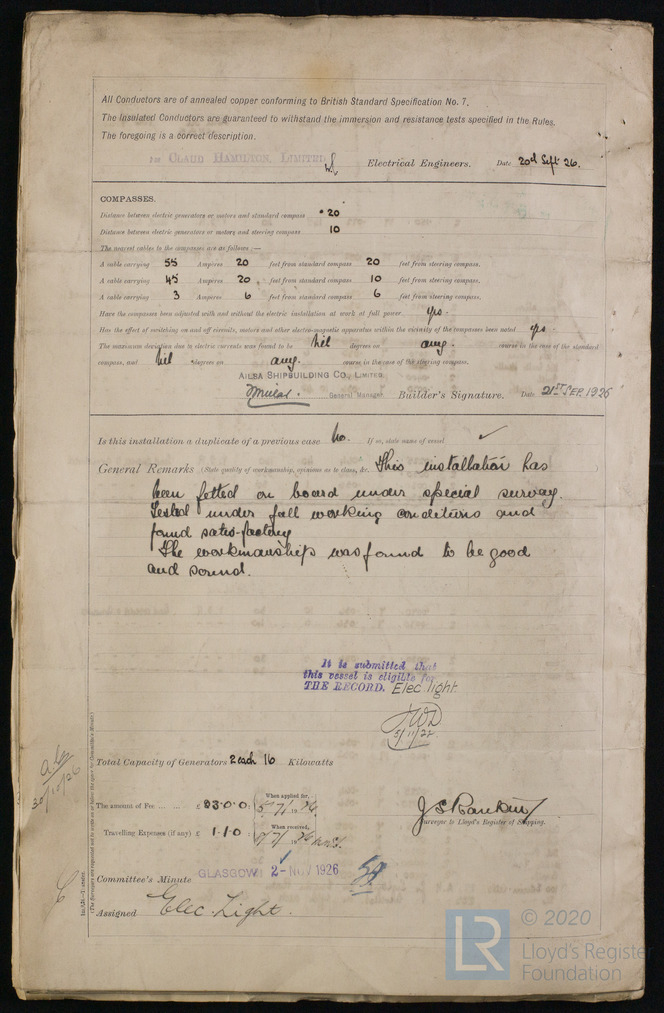 All Conductors are of annealed copper conforming to British Standard Specification No. 7.
The Insulated Conductors are guaranteed to withstand the immersion and resistance tests specified in the Rules.
The foregoing is a correct description.
FOR CLAUD HAMILTON, LIMITED Electrical Engineers. Date 20th Sept 26.
COMPASSES.
Distance between electric generators or motors and standard compass 20
Distance between electric generators or motors and steering compass 10
The nearest cables to the compasses are as follows :—
A cable carrying 55 Amperes 20 feet from standard compass 20 feet from steering compass.
A cable carrying 45 Amperes 20 feet from standard compass 10 feet from steering compass.
A cable carrying 3 Amperes 6 feet from standard compass 6 feet from steering compass.
Have the compasses been adjusted with and without the electric installation at work at full power yes.
Has the effect of switching on and off circuits, motors and other electro-magnetic apparatus within the vicinity of the compasses been noted yes
The maximum deviation due to electric currents was found to be Nil degrees on any. course in the case of the standard
compass, and Nil degrees on any. course in the case of the steering compass.
AILSA SHIPBUILDING CO., LIMITED.
General Manager. Builder's Signature. Date 21ST SEP. 1926
Is this installation a duplicate of a previous case No. If so, state name of vessel
General Remarks (State quality of workmanship, opinions as to class, &c. This installation has
been fitted on board under special survey.
Tested under full working conditions and
found satisfactory
The workmanship was found to be good
and sound.
It is submitted that
this vessel is eligible for
THE RECORD. Elec. light.
Total Capacity of Generators 2 each 16 Kilowatts
The amount of Fee £ 23.0.0 When applied for,
Travelling Expenses (if any) £ 1.1.0 When received,
Surveyor to Lloyd's Register of Shipping.
Committee's Minute GLASGOW 2-NOV 1926
Assigned Elec. Light.
© 2020
LR
Lloyd's Register
Foundation